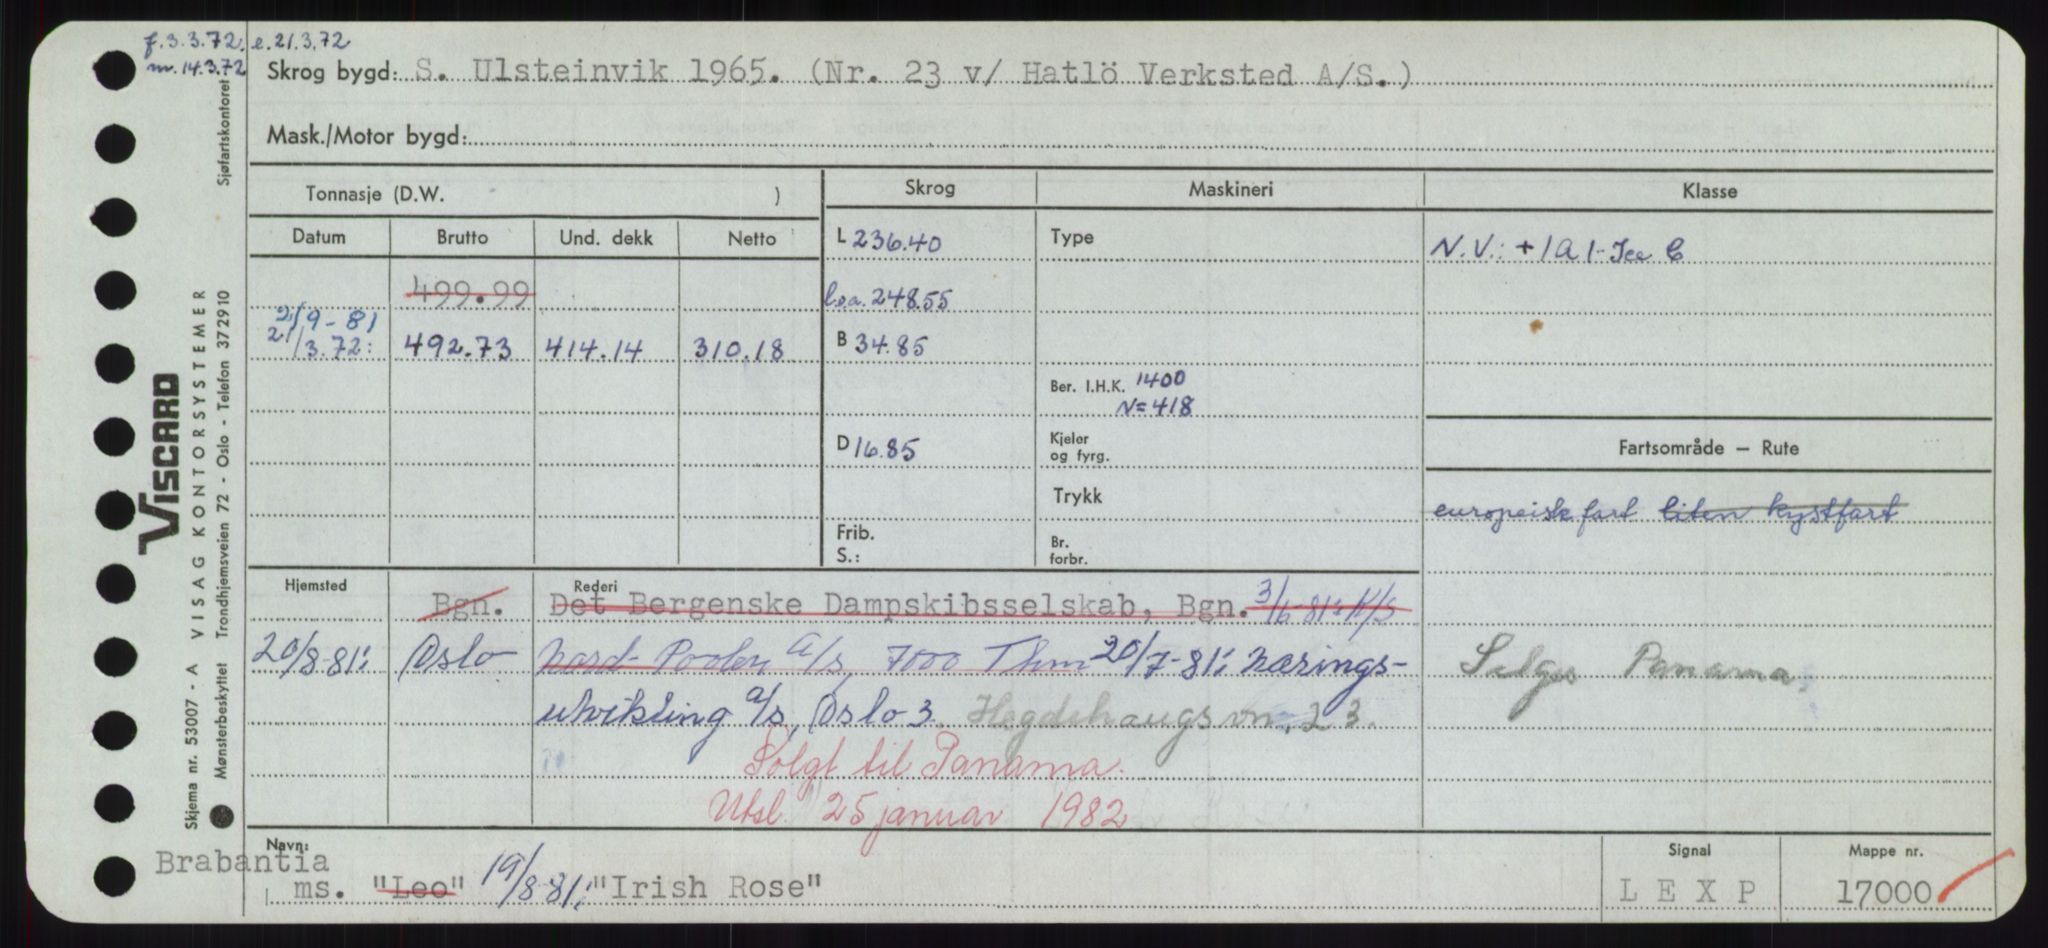 f.3.3.72. e.21.3.72
m.14.3.72
Skrog bygd: S. Ulsteinvik 1965. (Nr. 23 v/ Hatlö Verksted A/S.)
Mask./Motor bygd:
Tonnasje (D.W. )
Skrog
Maskineri
Klasse
Datum
Brutto
Und. dekk
Netto
L 236.40
Type
N.V.: +1A1-Ice C
499.99
l.o.a. 248.55
21/9-81
21/3.72: 492.73 414.14 310.18
B 34.85
Ber. I.H.K. 1400
N=418
D 16.85
Kjeler
og fyrg.
Fartsområde – Rute
Trykk
europeisk fart liten kystfart
Frib.
S.:
Br.
forbr.
Hjemsted
Rederi
Bgn. Det Bergenske Dampskibsselskab, Bgn. 3/6-81: K/S
20/8-81: Oslo Nord-Poolen A/S, 7000 Thm 20/7-81: Nærings-
utvikling A/S, Oslo 3. Hegdehaugsvn. 23.
Selges Panama.
Solgt til Panama.
Utsl. 25 januar 1982
Navn:
Brabantia
ms. "Leo" 19/8-81: "Irish Rose"
Signal
LEXP
Mappe nr.
17000
VISCARD
VISAG KONTORSYSTEMER
Sjøfartskontoret
Trondhjemsveien 72 - Oslo - Telefon 372910
Skjema nr. 53007 - A
Mønsterbeskyttet